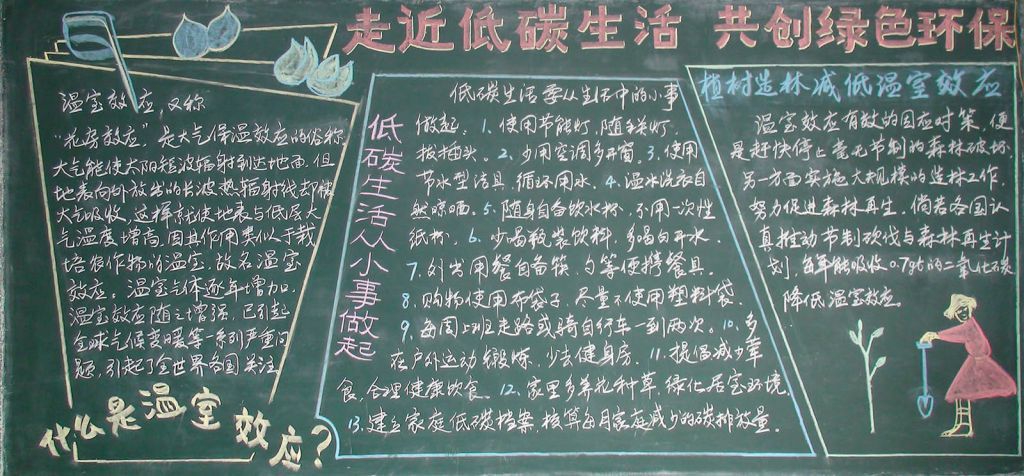 走近低碳生活 共创绿色环保
温室效应，又称
“花房效应”，是大气保温效应的俗称
大气能使太阳短波辐射到达地面，但
地表向外放出的长波热辐射线却被
大气吸收，这样就使地表与低层大
气温度增高，因其作用类似于栽
培农作物的温室，故名温室
效应。温室气体逐年增加，
温室效应随之增强，已引起
全球气候变暖等一系列严重问
题，引起了全世界各国关注
什么是温室效应？
低碳生活从小事做起
低碳生活要从生活中的小事
做起：1、使用节能灯，随手关灯，
拔插头。2、少用空调多开窗。3、使用
节水型洁具，循环用水。4、温水洗衣自
然晾晒。5、随身自备饮水杯，不用一次性
纸杯。6、少喝瓶装饮料，多喝白开水。
7、外出用餐自备筷、勺等便携餐具。
8、购物使用布袋子，尽量不使用塑料袋。
9、每周上班走路或骑自行车一到两次。10、多
在户外运动锻炼，少去健身房。11、提倡减少荤
食，合理健康饮食。12、家里多养花种草，绿化居室环境。
13、建立家庭低碳档案，核算每月家庭减少的碳排放量。
植树造林减低温室效应
温室效应有效的因应对策，便
是赶快停止毫无节制的森林破坏，
另一方面实施大规模的造林工作，
努力促进森林再生。倘若各国认
真推动节制砍伐与森林再生计
划，每年能吸收0.7gt的二氧化碳
降低温室效应。